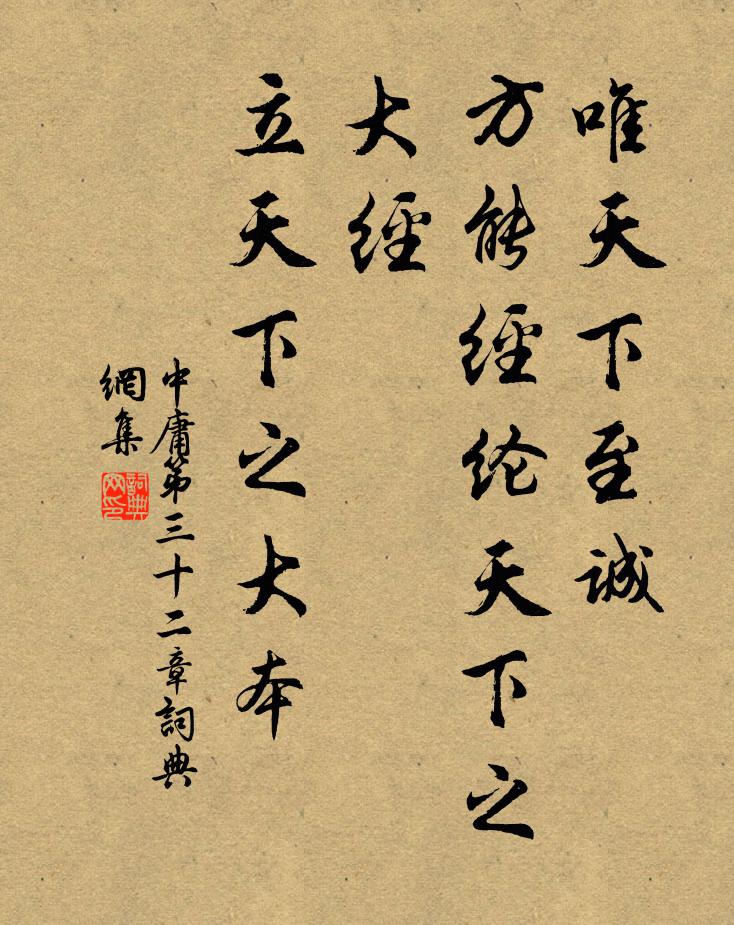 唯天下至誠
方能經纶天下之
大經
立天下之大本
中庸第三十二章詞典
網集
詞典
网印